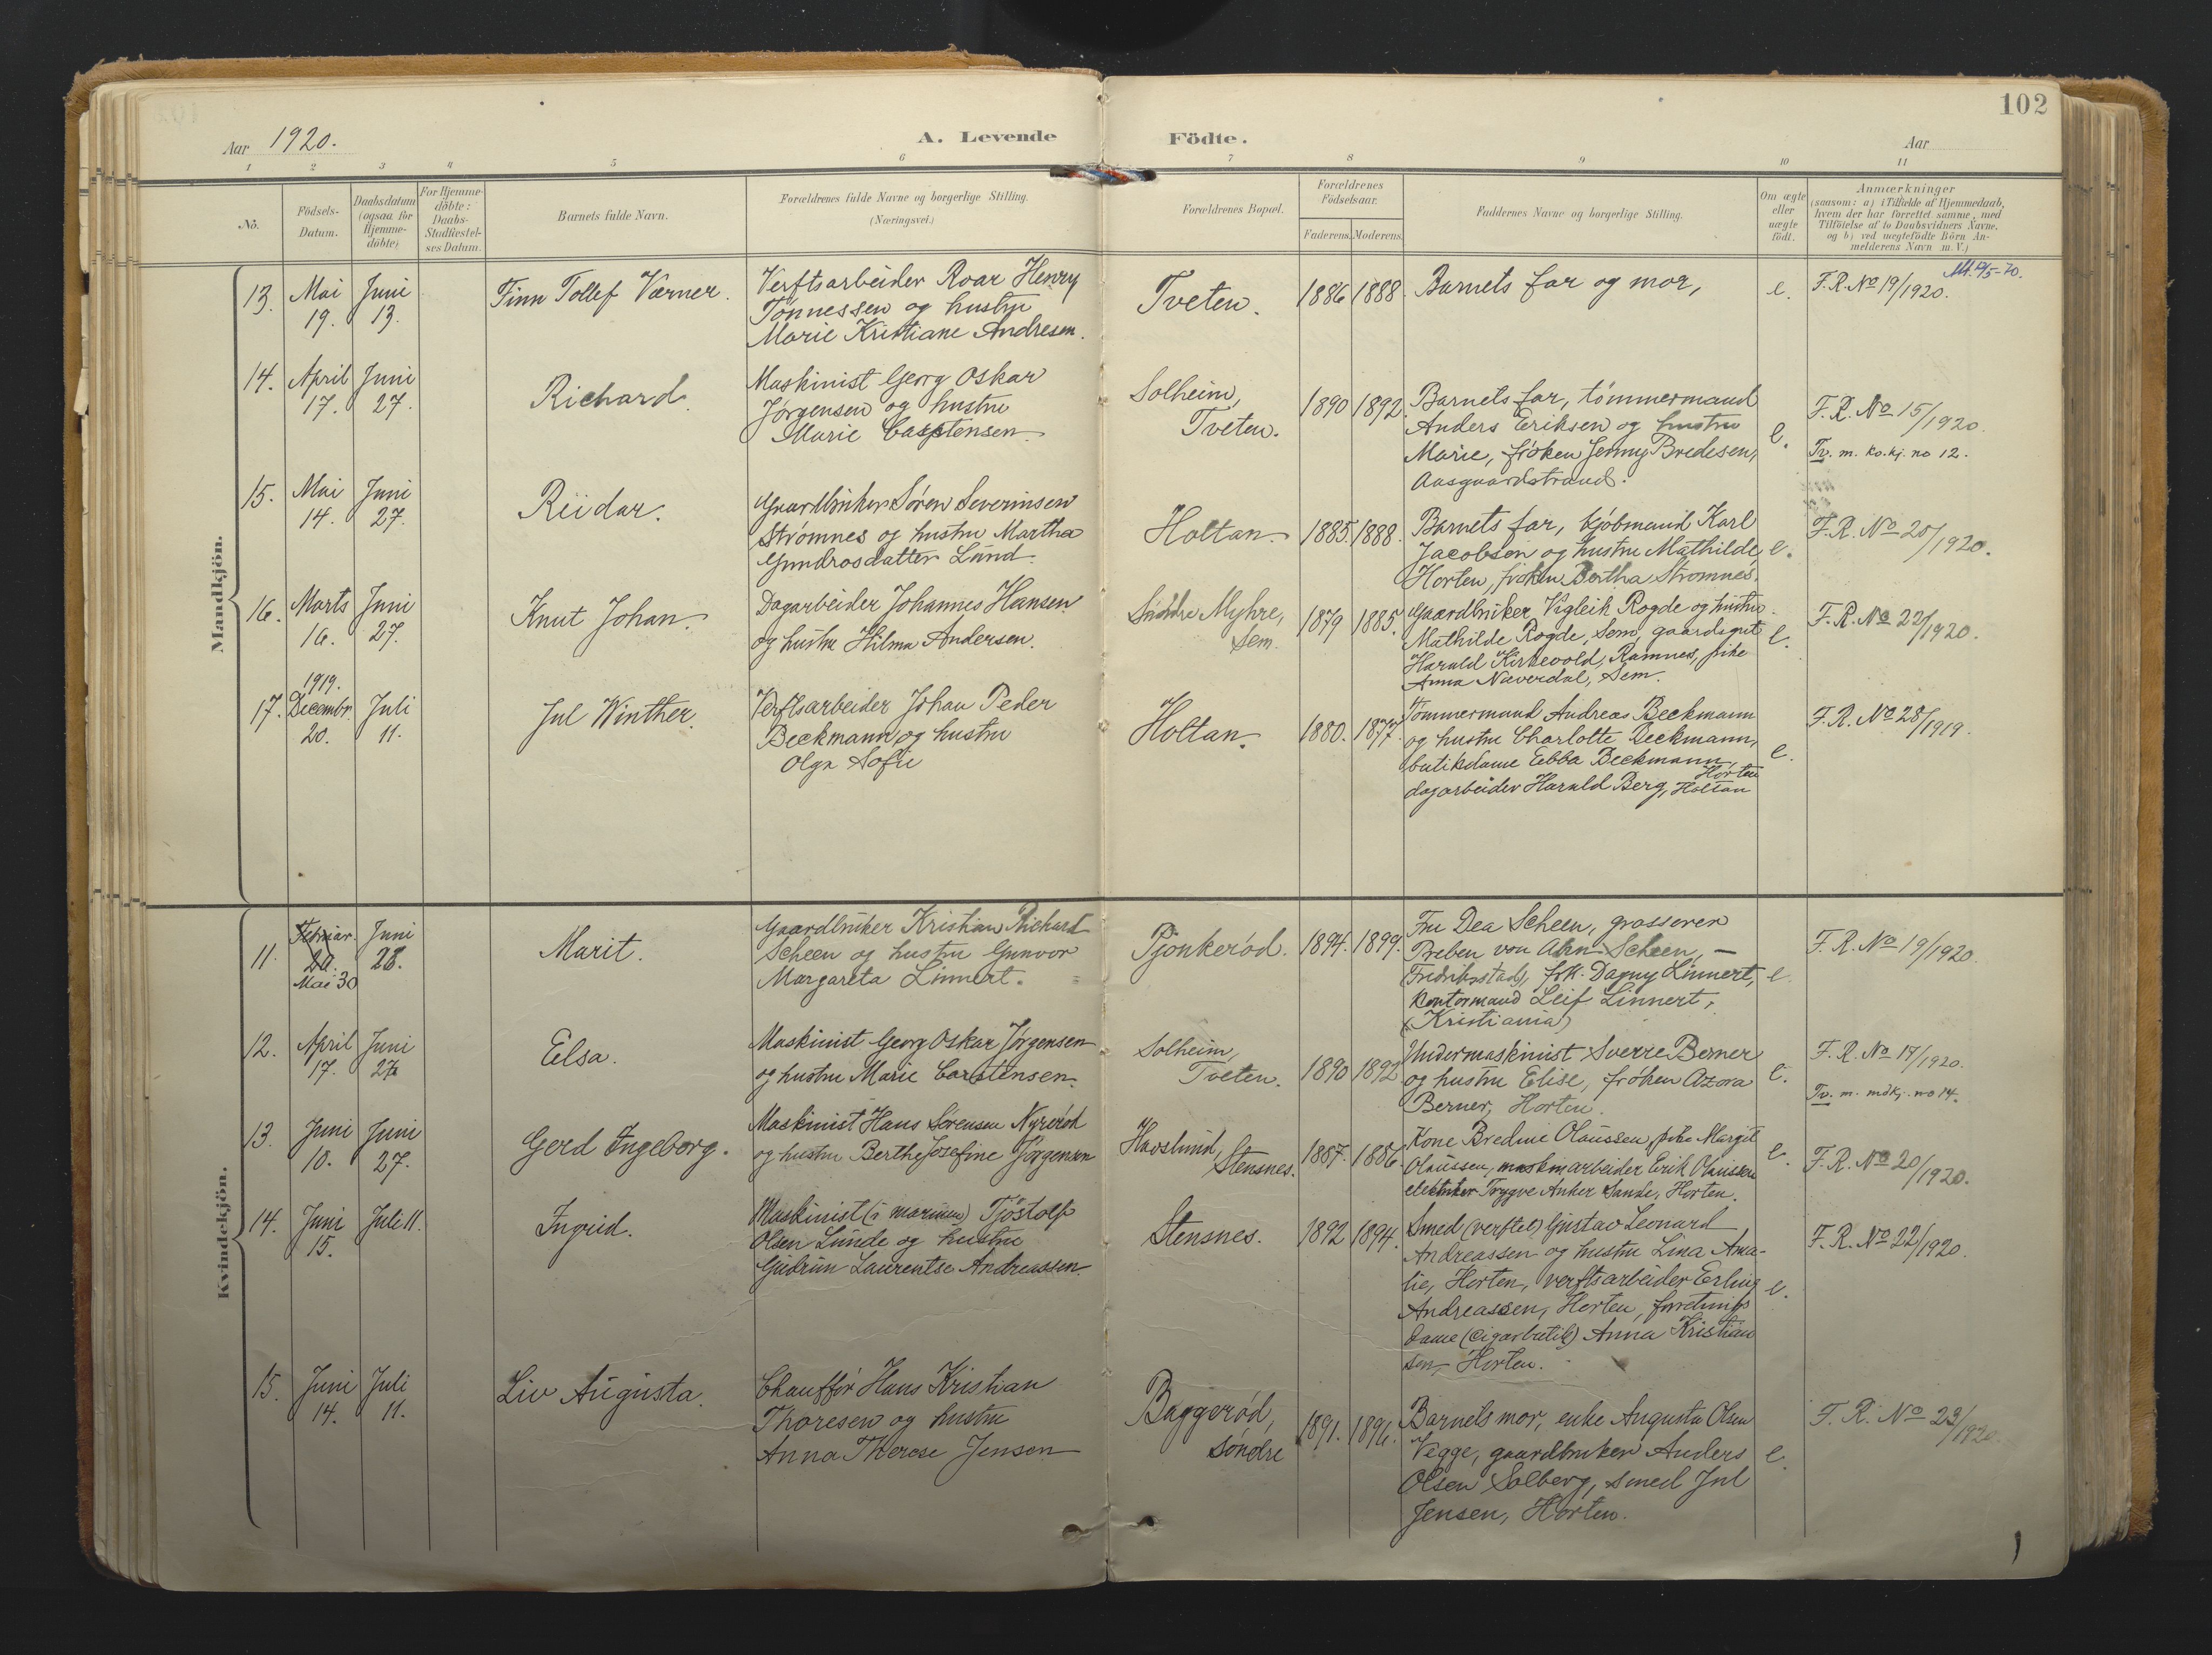 102
Aar 1920.
A. Levende Födte.
Aar
1 2 3 4 5 6 7 8 9 10 11
No.
Födsels-
Datum.
Daabsdatum
(ogsaa for
Hjemme-
döbte)
For Hjemme-
döbte:
Daabs-
Stadfæstel-
ses Datum.
Barnets fulde Navn.
Forældrenes fulde Navne og borgerlige Stilling.
(Næringsvei.)
Forældrenes Bopæl.
Forældrenes
Födselsaar.
Faderens. Moderens.
Faddernes Navne og borgerlige Stilling.
Om ægte
eller
uægte
födt.
Anmærkninger
(saasom: a) i Tilfælde af Hjemmedaab,
hvem der har forrettet samme, med
Tilföielse af to Daabsvidners Navne.
og b) ved uægtefödte Börn An-
melderens Navn m. V.)
Mandkjön.
13.
Mai
19.
Juni
13.
Finn Tollef Værner.
Verftsarbeider Roar Henry
Tönnessen og hustru
Marie Kristiane Andresen.
Tveten.
1886 1888.
Barnets far og mor,
e.
F. R. No 19/1920.
14.
April
17.
Juni
27.
Richard.
Maskinist Georg Oskar
Jörgensen og hustru
Marie Carstensen.
Solheim,
Tveten.
1890 1892.
Barnets far, tömmermand
Anders Eriksen og hustru
Marie, fröken Jenny Bredesen,
Aasgaardstrand.
e.
F. R. No 15/1920.
Tv. m. kv.kj. no 12.
15.
Mai
14.
Juni
27.
Reidar.
Gaardbruker Sören Severinsen
Strömnes og hustru Martha
Gundrosdatter Lund.
Holtan.
1885. 1888.
Barnets far, kjöbmand Karl
Jacobsen og hustru Mathilde,
Horten, fröken Bertha Strömnes.
e.
F. R. No 20/1920.
16.
Marts
16.
Juni
27.
Knut Johan.
Dagarbeider Johannes Hansen
og hustru Hilma Andersen.
Söndre Myhre,
Sem.
1879 1885.
Gaardbruker Vigleik Rogde og hustru
Mathilde Rogde, Sem, gaardsgut
Harald Kirkevold, Ramnes, pike
Anna Næverdal, Sem.
e.
F. R. No 22/1920.
17.
1919.
Decembr.
20.
Juli
11.
Jul Winther.
Verftsarbeider Johan Peder
Beckmann og hustru
Olga Sofie
Holtan.
1880. 1877.
Tömmermand Andreas Beckmann
og hustru Charlotte Beckmann,
butikdame Ebba Beckmann,
Horten
dagarbeider Harald Berg, Holtan
e.
F. R. No 28/1919.
Kvindekjön.
11.
Februar.
20.
Mai 30
Juni
28.
Marit.
Gaardbruker Kristian Richard
Scheen og hustru Gunvor
Margareta Linnert.
Pjonkeröd.
1894. 1899.
Fru Dea Scheen, grosserer
Preben von Ahn-Scheen, —
(Fredrikstad), frk. Dagny Linnert,
kontormand Leif Linnert,
(Kristiania)
e
F. R. No 19/1920.
12.
April
17.
Juni
27.
Elsa.
Maskinist Georg Oskar Jörgensen
og hustru Marie Carstensen.
Solheim,
Tveten.
1890 1892
Undermaskinist Sverre Berner
og hustru Elise, fröken Azora
Berner, Horten.
e.
F. R. No 17/1920.
Tv. m. mdkj. no 14.
13.
Juni
10.
Juni
27.
Gerd Ingeborg.
Maskinist Hans Sörensen Nyreröd
og hustru Berthe Josefine Jörgensen
Havslund,
Stensnes.
1887. 1886.
Kone Bredine Olaussen, pike Margit
Olaussen, maskinarbeider Erik Olaussen
elektriker Trygve Anker Sande, Horten.
e.
F. R. No 20/1920.
14.
Juni
15.
Juli 11.
Ingrid.
Maskinist (i marinen) Tjöstolf
Olsen Lunde og hustru
Gudrun Laurentse Andreassen.
Stensnes.
1892 1894.
Smed (verftet) Gustav Leonard
Andreassen og hustru Lina Ama-
lie, Horten, verftsarbeider Erling
Andreassen, Horten, forretnings
dame (cigarbutik) Anna Kristian
sen, Horten.
e.
F. R. No 22/1920.
15.
Juni
14.
Juli
11.
Liv Augusta.
Chaufför Hans Kristian
Thoresen og hustru
Anna Therese Jensen
Baggeröd,
söndre
1891. 1896.
Barnets mor, enke Augusta Olsen
Vegge, gaardbruker Anders
Olsen Solberg, smed Jul
Jensen, Horten.
e.
F. R. No 23/1920.